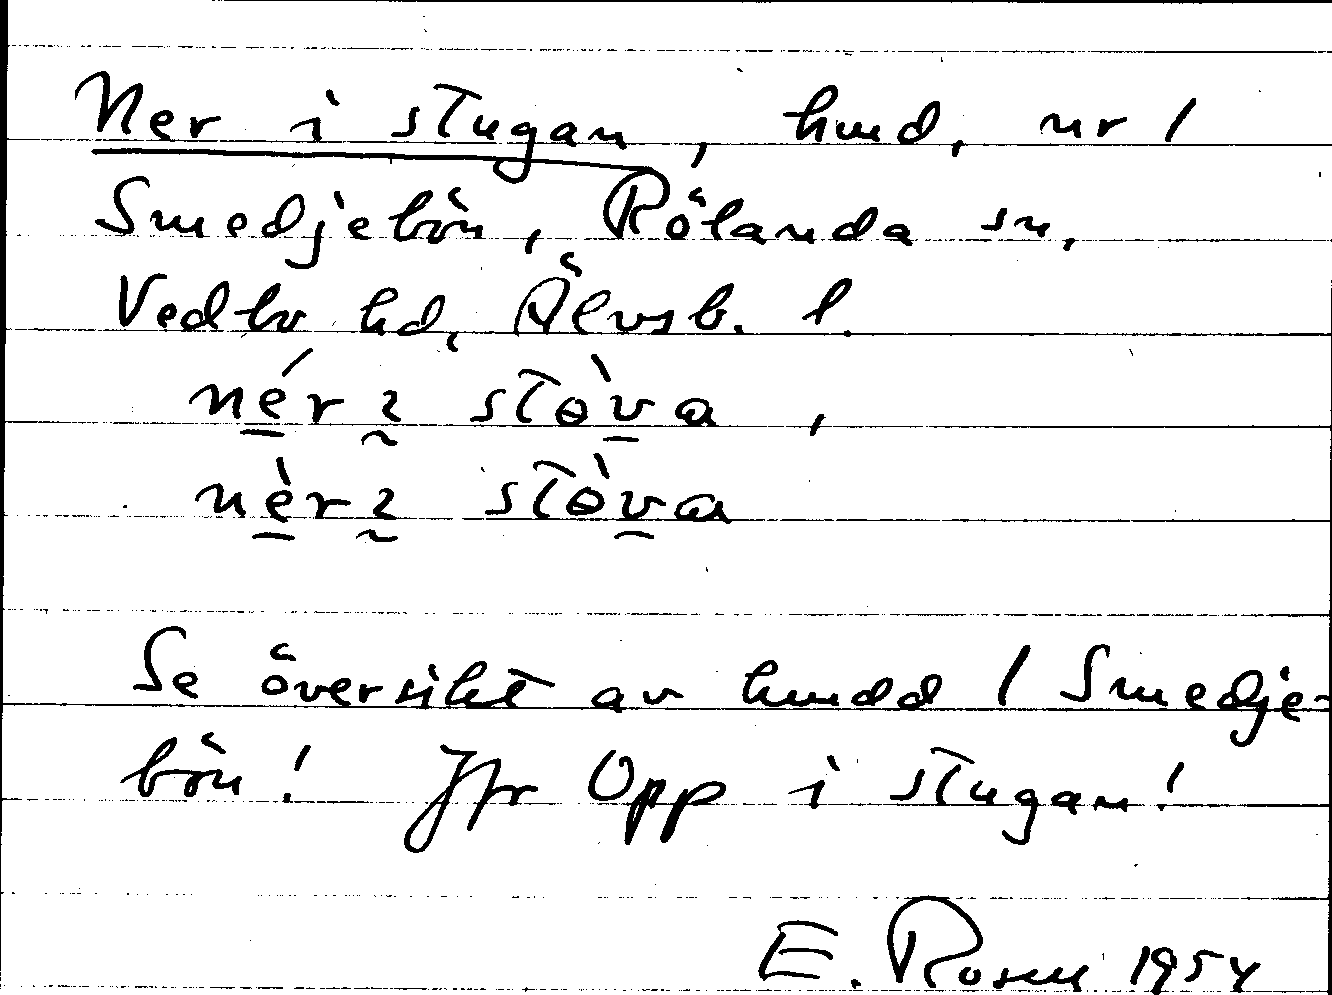 Ner i stugan, hmd, nr 1
Smedjebön, Rölanda sn,
Vedbo hd, Älvsb. l.
nér ɩ stɵ̀va,
nèr ɩ stɵ̀va
Se översikt av hmdd 1 Smedje-
bön! Jfr Opp i stugan!
E. Rosell 1954